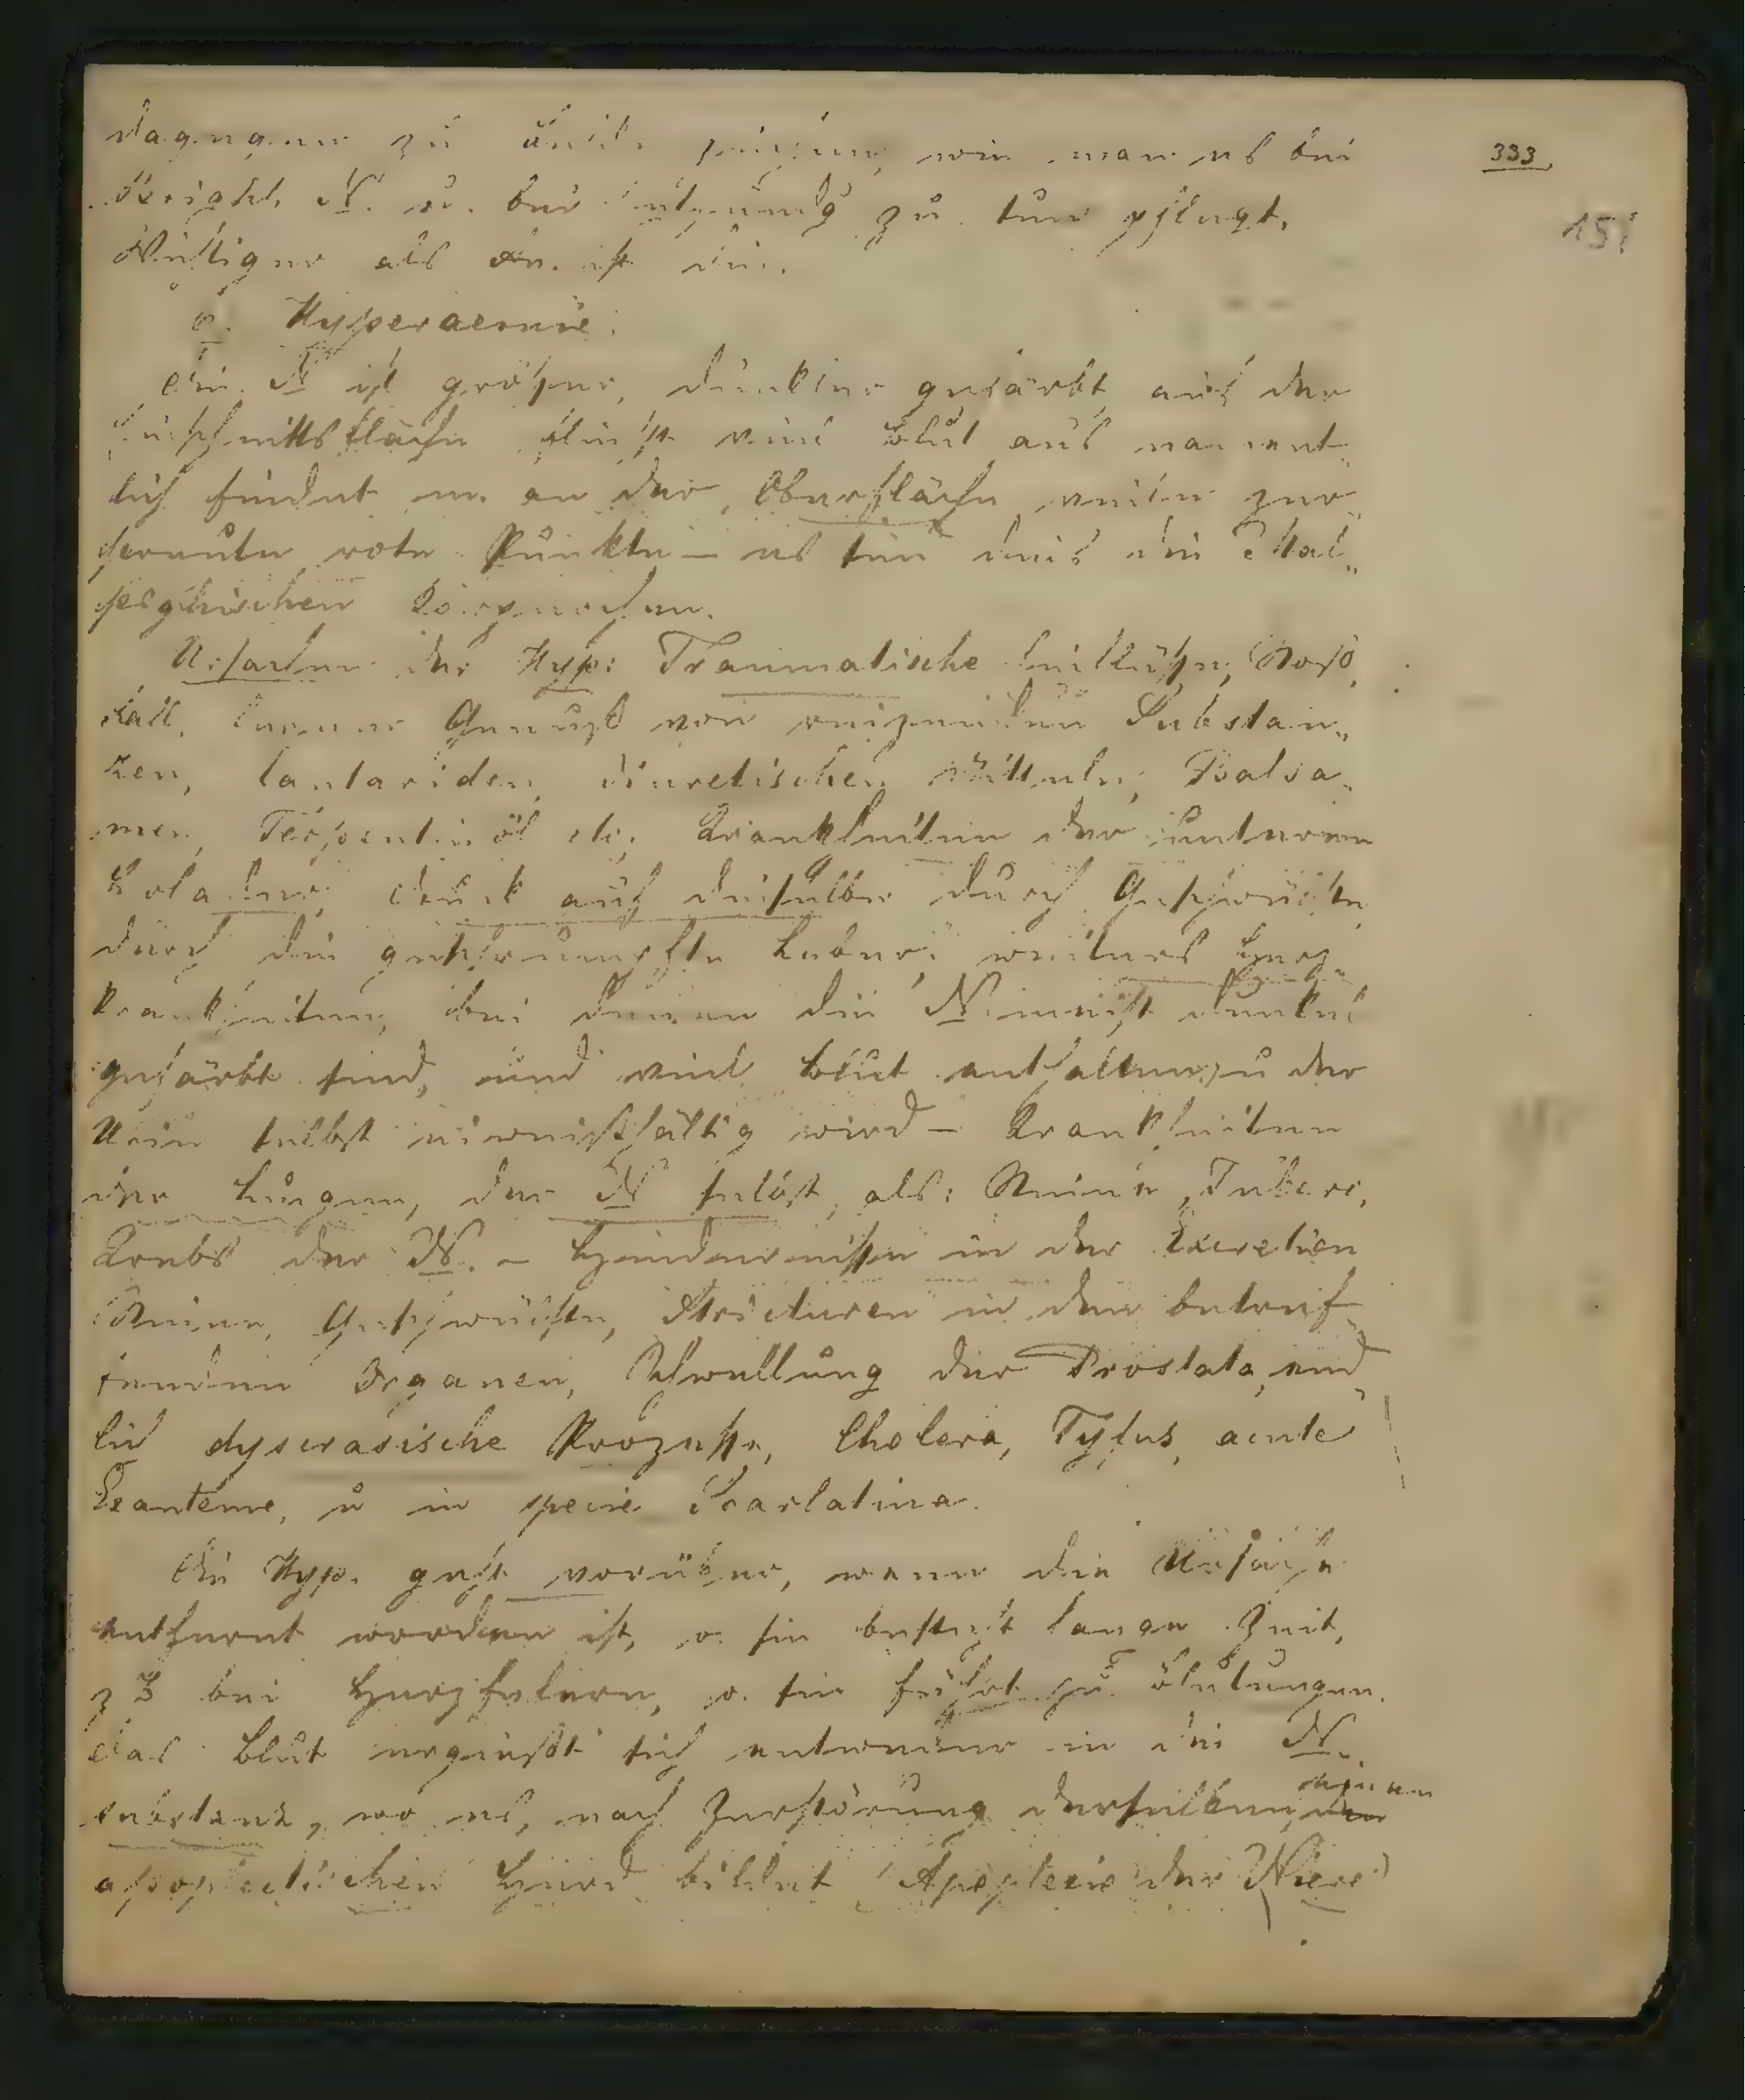 dagegen zu wie man es bei
333
Bright. N. u. bei zu tun pflegt.
151
Wichtiger als An. ist die.
b. Hyperaemie:
Die N ist größer, dunkler gefärbt aus der
Durchschnittsfläche fließt viel Blut aus nament-
lich findet m. an der Oberfläche viele zer-
streute rote Punkte – es sind dies die Mal-
pighischen Körperchen.
Ursachen der Hyp: Traumatische Einflüsse,
Genuß von reizenden Substan-
zen, Cantariden, diuretischen Mitteln, Balsa-
men, Terpentinöl etc. Krankheiten der unteren
Holader, Druck auf dieselbe durch Geschwülste
durch die geschrumpfte Leber; weiters Herz-
krankheiten, bei denen die N meist dunkel
gefärbt sind, und viel Blut enthalten, u der
Urin selbst eiweißhältig wird – Krankheiten
der Lungen, der N selbst, als: Steine, Tuberc,
Krebs der N. – Hindernisse in der Excretion
Steine, Geschwülste, Stricturen in den betref-
fenden Organen, Schwellung der Prostata, end-
lich dyscrasische Prozesse, Cholera, Tyfus, acute
Exanteme, u in specie Scarlatina.
Die Hyp. geht vorüber, wenn die Ursache
entfernt worden ist, o. sie besteht lange Zeit,
z B bei Herzfehlern, o. sie führt zu Blutungen.
Das Blut ergießt sich entweder in die N-
substanz, wo es, nach Zerstörung derselben, einen
apoplectischen Herd bildet (Apoplexie der Niere)